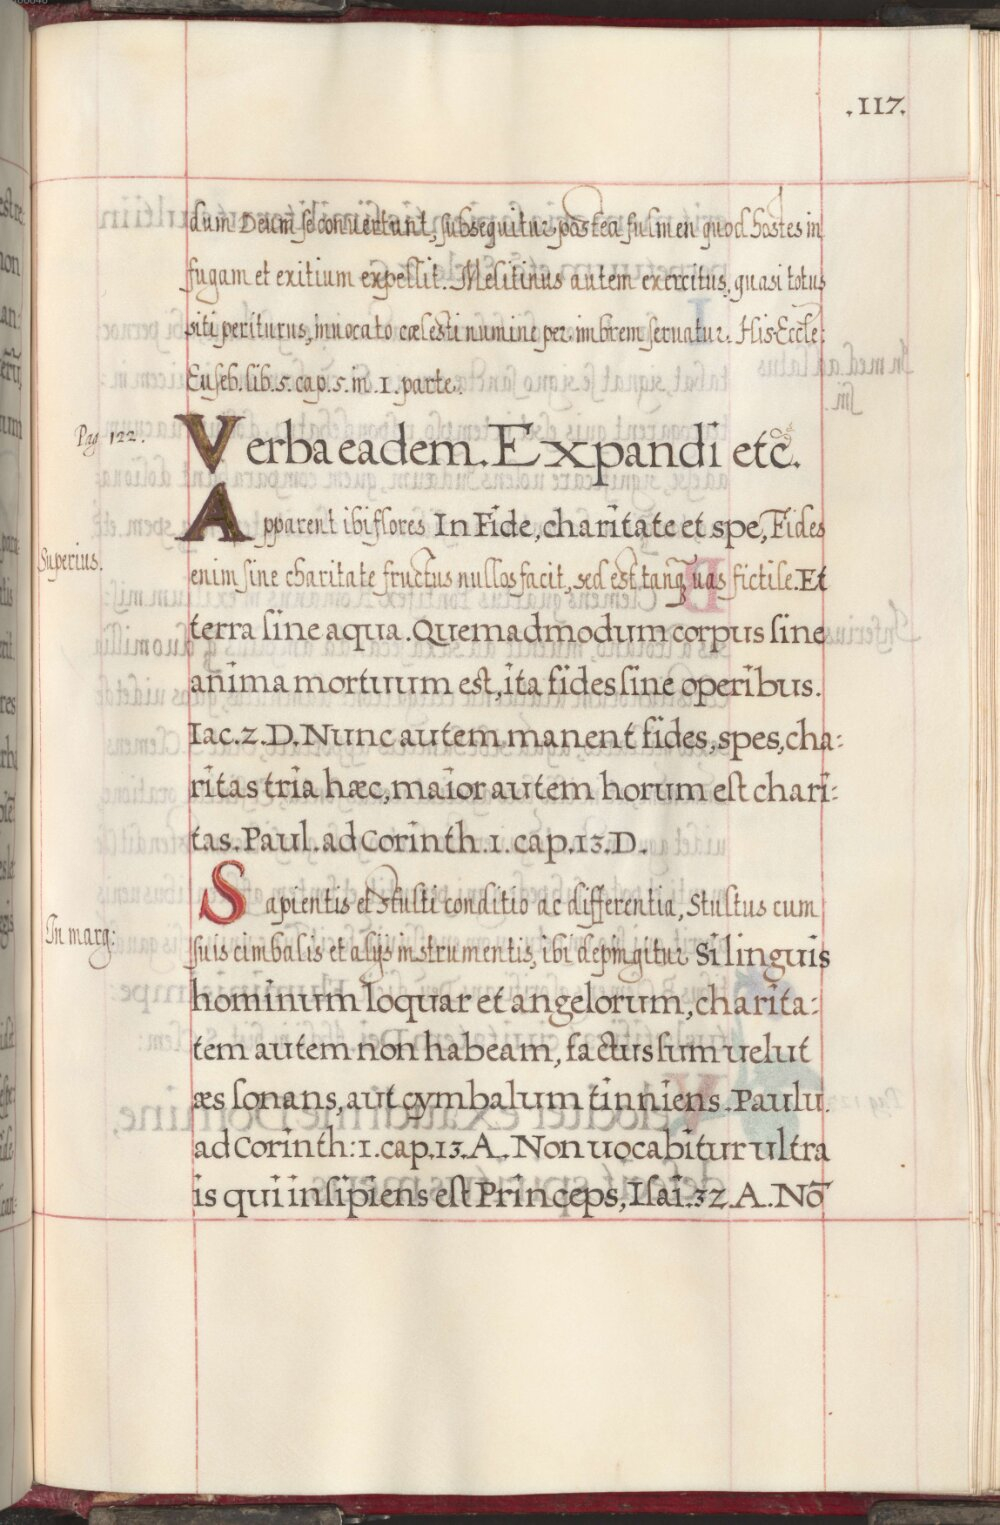 .117.
dum Deum se conuertunt, subsequitur postea fulmen quod hostes in
fugam et exitium expellit. Melitinus autem exercitus, quasi totus
siti periturus, innocato cælesti numine per imbrem seruatur. His. Eccle:
Euseb. lib. 5. cap. 5. in .1. parte.
Pag 122.
Verba eadem. Expandi etc̃.
Apparent ibi flores In Fide, charitate et spe, Fides
Superius.
enim sine charitate fructus nullos facit, sed est tanq̃ uas fictile. Et
terra sine aqua. Quemadmodum corpus sine
anima mortuum est, ita fides sine operibus.
Iac. 2. D. Nunc autem manent fides, spes, cha:
ritas tria hæc, maior autem horum est chari:
tas. Paul. ad Corinth. 1. cap. 13. D.
Sapientis et Stulti conditio ac differentia, Stultus cum
In marg:
suis cimbalis et alijs instrumentis, ibi depingitur Si linguis
hominum loquar et angelorum, charita:
tem autem non habeam, factus sum uelut
æs sonans, aut cymbalum tinniens. Paulu.
ad Corinth: 1. cap. 13. A. Non uocabitur ultra
is qui insipiens est Princeps, Isai. 32. A. Nō